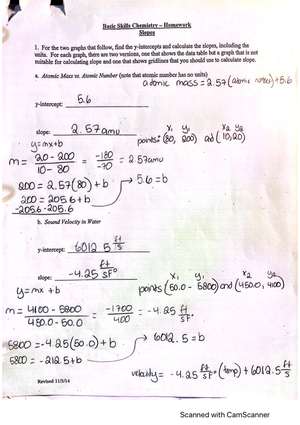 Basic Skills Chemistry – Homework
Slopes
1. For the two graphs that follow, find the y-intercepts and calculate the slopes, including the
units. For each graph, there are two versions, one that shows the data table but a graph that is not
suitable for calculating slope and one that shows gridlines that you should use to calculate slope.
a. Atomic Mass vs. Atomic Number (note that atomic number has no units)
atomic mass = 2.57(atomic number)+5.6
y-intercept: 5.6
slope: 2.57amu
y=mx+b
x₁ y₁ x₂ y₂
points: (80, 200) and (10,20)
m = 20 - 200 / 10 - 80 = -180 / -70 = 2.57amu
200 = 2.57(80) + b → 5.6=b
200 = 205.6 + b
-205.6 -205.6
b. Sound Velocity in Water
y-intercept: 6012.5 ft/s
slope: -4.25 ft/sF°
y=mx +b
x₁ y₁ x₂ y₂
points (50.0 - 5800) and (450.0, 4100)
m = 4100 - 5800 / 450.0 - 50.0 = -1700 / 400 = -4.25 ft/sF°
5800 = -4.25(50.0) + b → 6012.5 = b
5800 = -212.5 + b
velocity = -4.25 ft/sF° (temp) + 6012.5 ft/s
Revised 11/3/14
Scanned with CamScanner